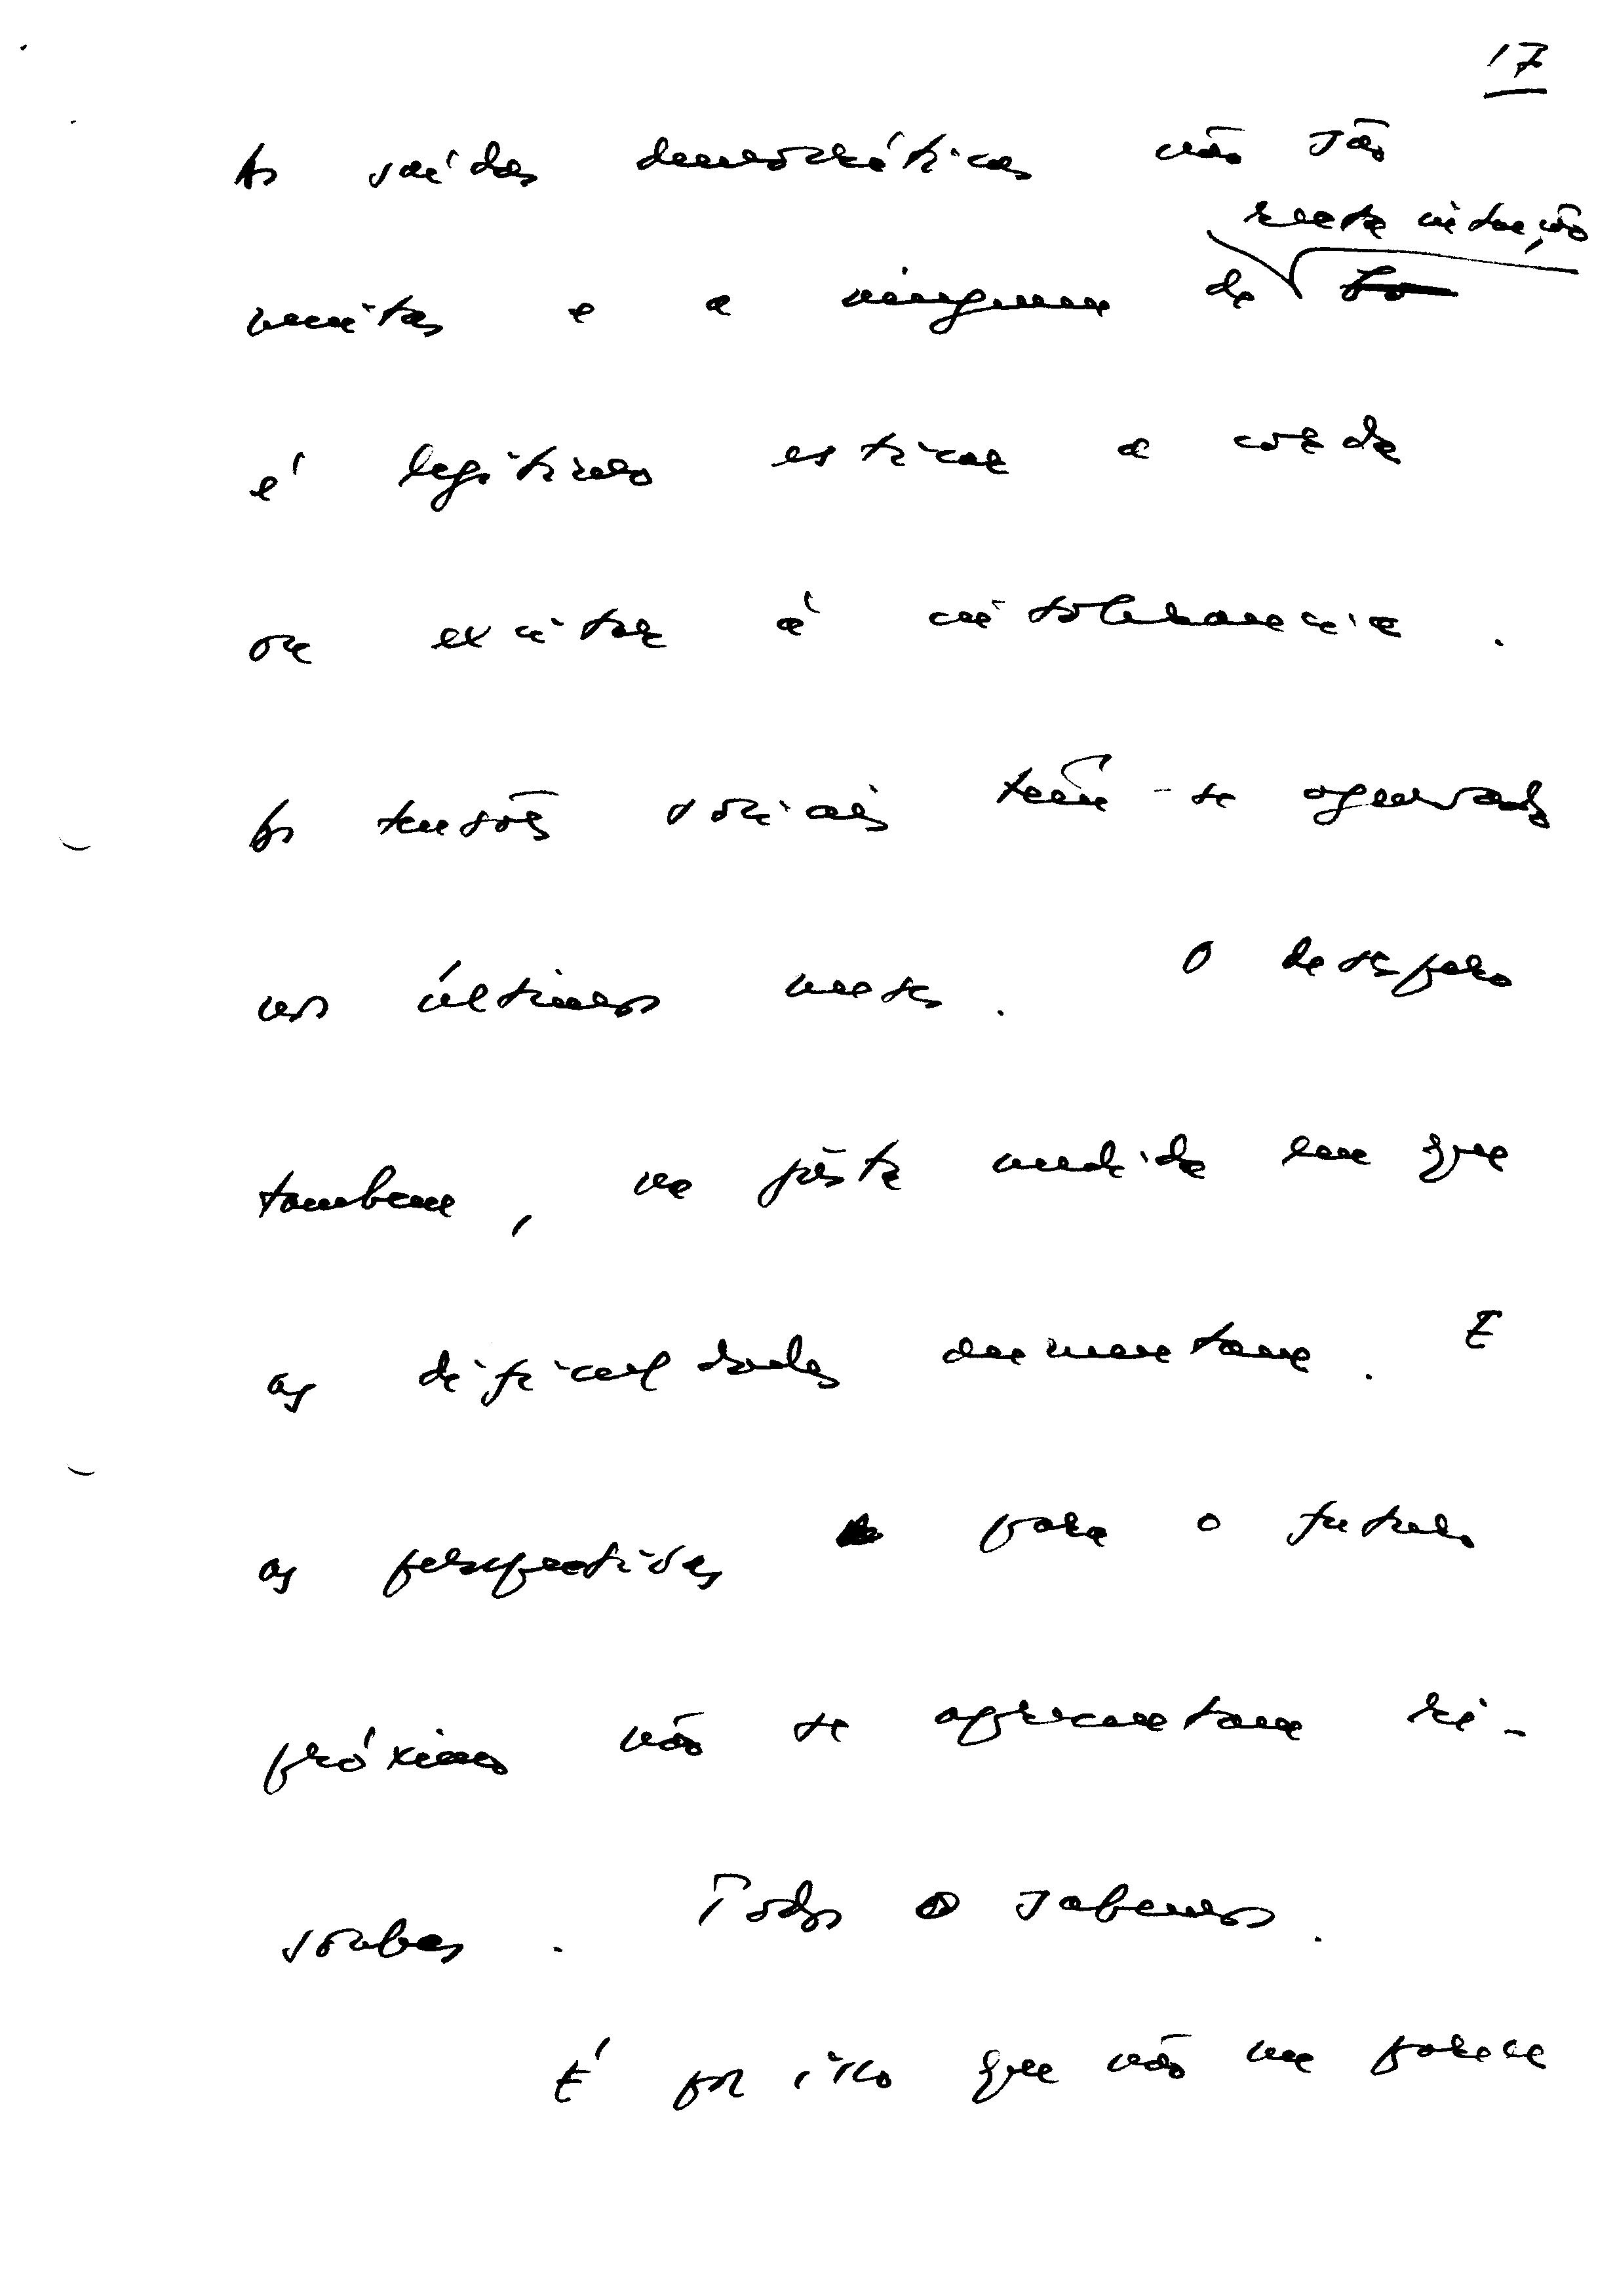 17
As saídas democráticas não são
nesta situação
muitas e a ninguem de
é legítimo esticar a corda
ou excitar à intolerancia.
As tensões sociais têem-se agravado
nos últimos meses. O desespero
tambem, na justa medida em que
as dificuldades aumentam. E
as perspectivas para o futuro
próximo não se apresentam ri-
sonhas. Todos o sabemos.
É por isso que não me parece